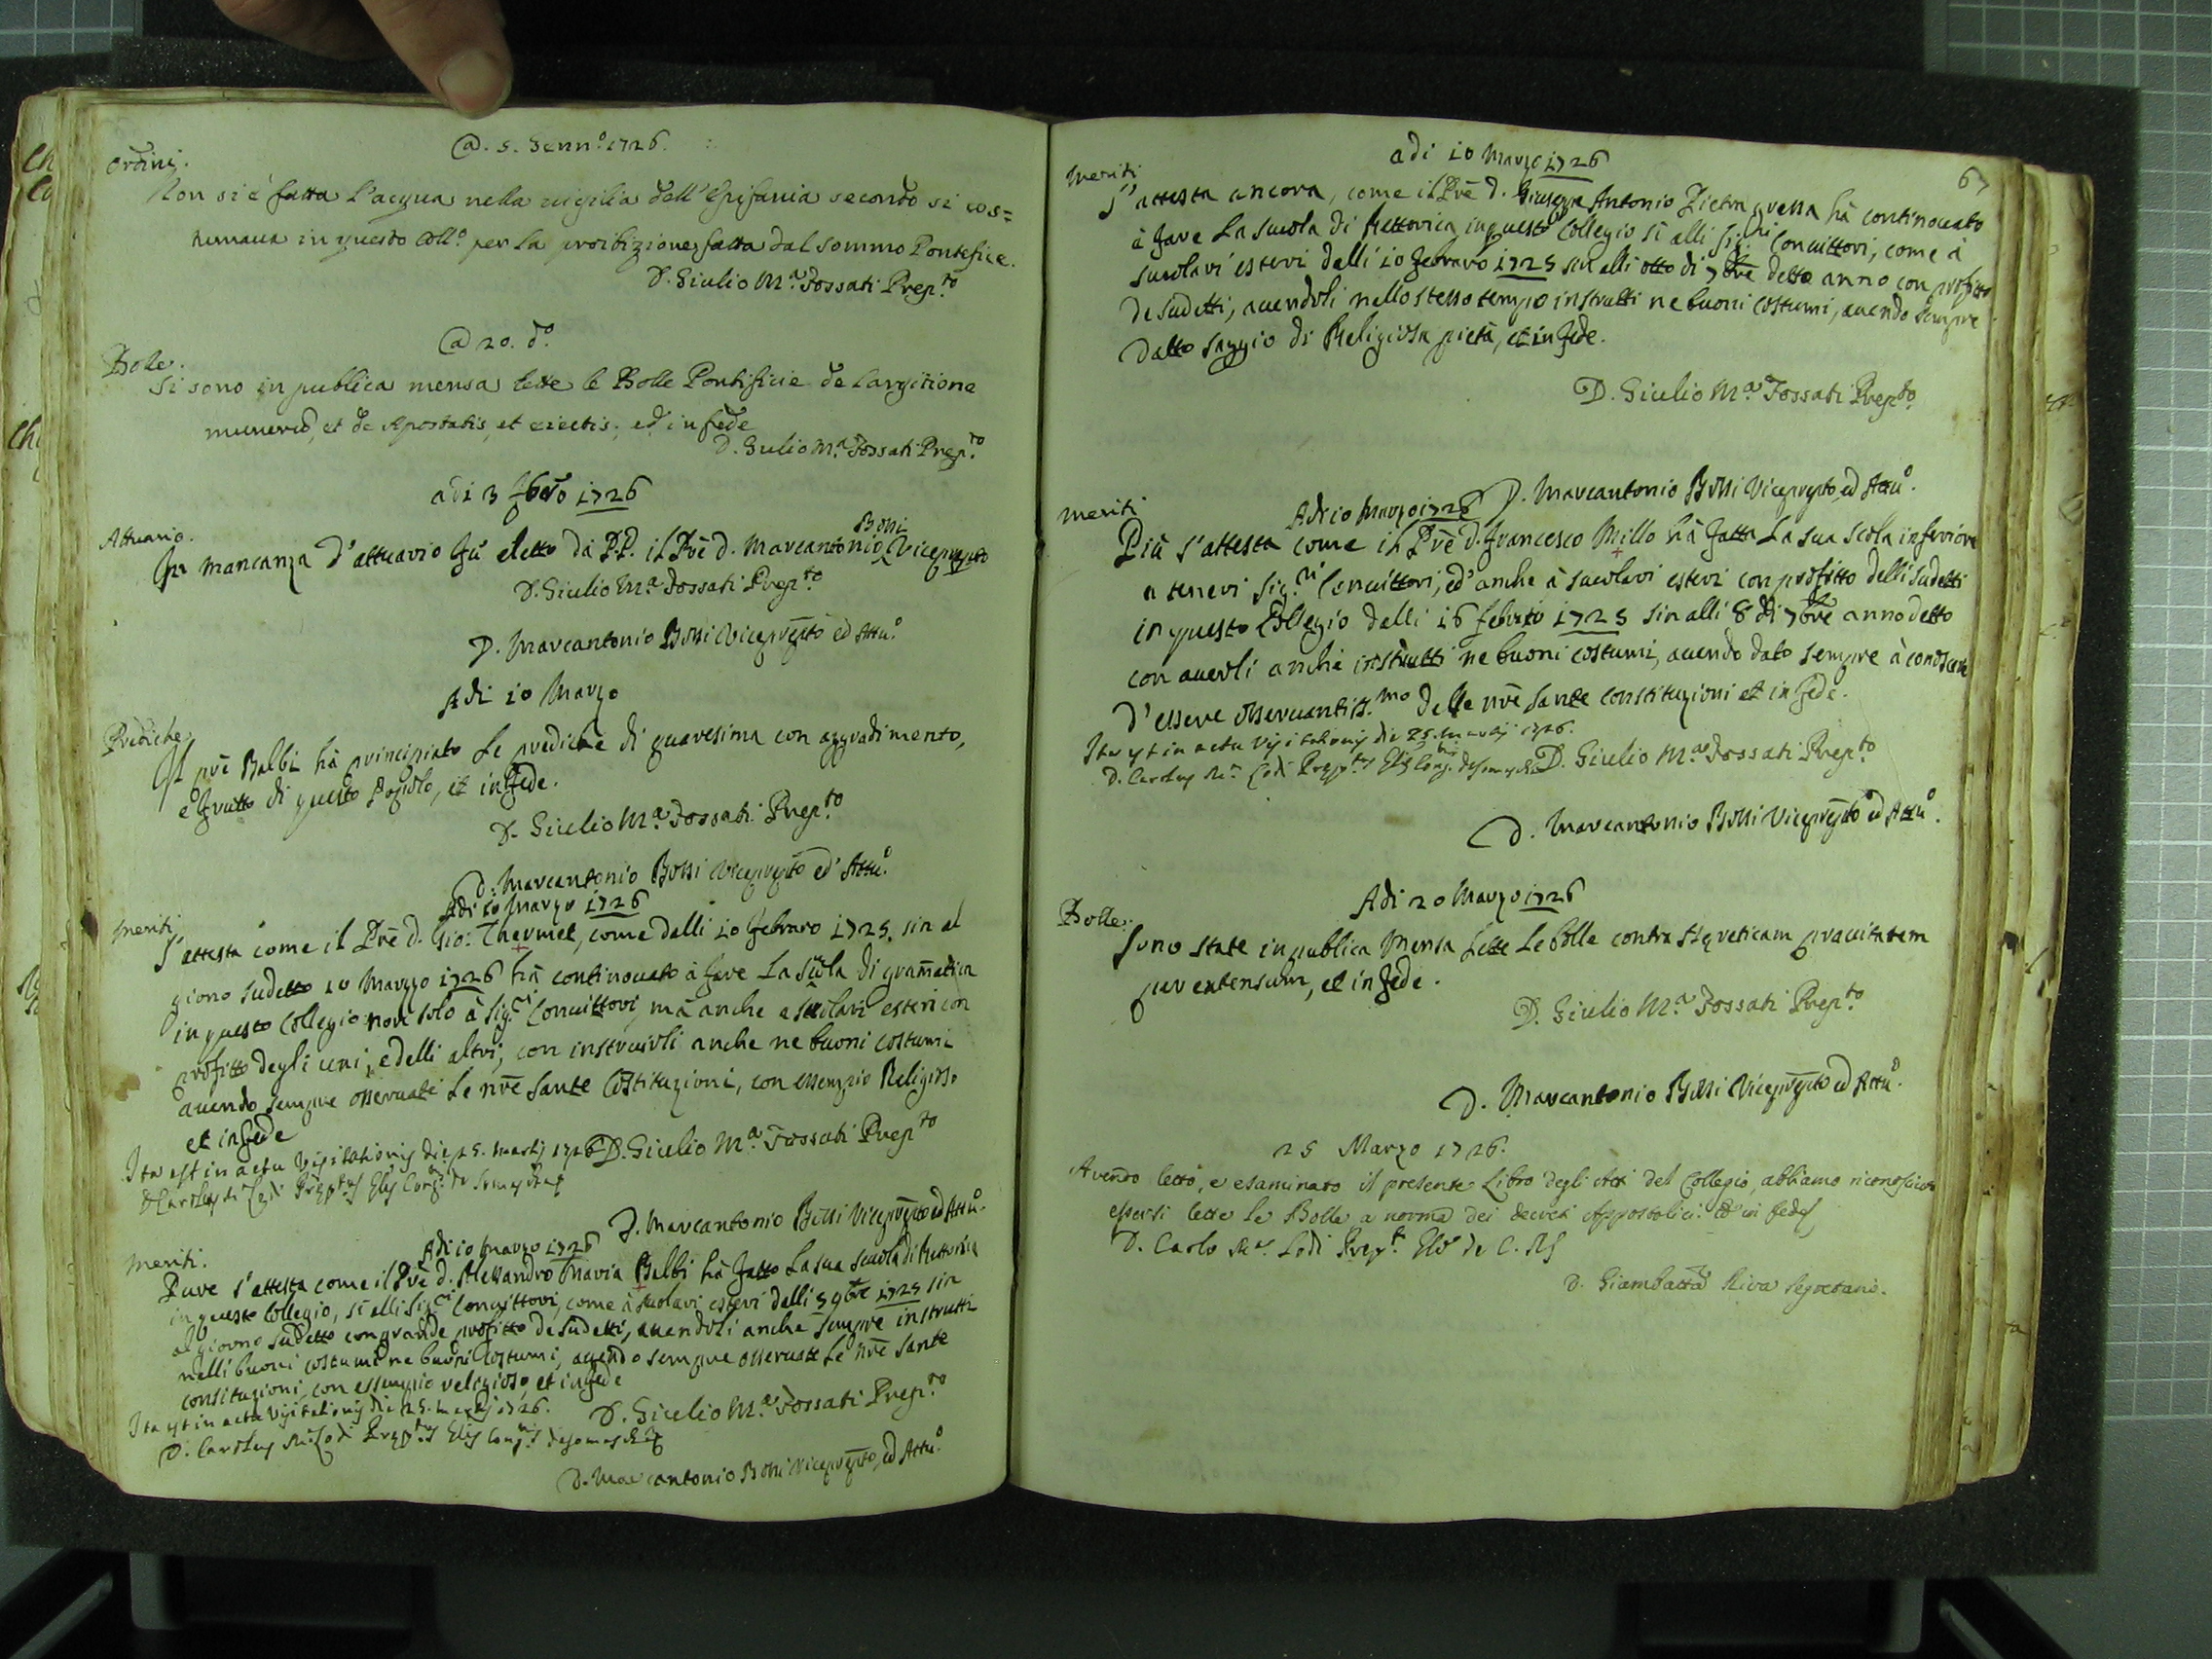 @. 5. Genn.º 1726.
Ordini.
Non si è fatta l'acqua nella vigilia dell'Epifania secondo si cos=
tumava in questo Coll.º per la proibizione fatta dal sommo Pontefice.
D. Giulio M.ª Fossati Prep.to
@ 20. d.º
Bolle.
Si sono in publica mensa lette le Bolle Pontificie de Largitione
munerum, et de Apostatis, et eiectis; ed in fede
D. Giulio M.ª Fossati Prep.to
adi 3 febro 1726
Attuario.
In mancanza d'attuario fù eletto da P.P. il Prē d. Marcantonio Bossi Viceprepto
D. Giulio M.ª Fossati Prep.to
D. Marcantonio Bossi Viceprepto ed Attu.º
Adi 10 Marzo
Prediche
Il prē Balbi hà principiato le prediche di quaresima con aggradimento,
e frutto di questo Popolo, et in fede.
D. Giulio M.ª Fossati Prep.to
D. Marcantonio Bossi Viceprepto ed Attu.º
Adi 10 Marzo 1726
Meriti
S'attesta come il Prē D. Gio: Thermet, come dalli 10 Febraro 1725. sin al
giorno sudetto 10 Marzo 1726 hà continouato à fare la scola di gramatica
in questo Collegio non solo à Sig.ri Convittori, mà anche a scolari esteri con
profitto degli uni, e delli altri, con instruirli anche ne buoni costumi
avendo sempre osservate le nrē sante Costituzioni, con essempio Religioso
et in fede
Ita est in actu Visitationis die 25. Martij 1726 D. Giulio M.ª Fossati Prep.to
D. Carolus M.ª Lodi Prep.tus Glis Cong. de Somascha
D. Marcantonio Bossi Viceprepto ed Attu.º
Adi 10 Marzo 1726
Meriti.
Pure s'attesta come il Prē d. Alessandro Maria Balbi hà fatto la sua scuola di Rettorica
in questo Collegio, si alli Sig.ri Convittori, come à scolari esteri dalli 5 9bre 1725 sin
al giorno sudetto con grande profitto de sudetti, avendoli anche sempre instrutti
nelli buoni costumi ne buoni costumi, avendo sempre osservate le nrē sante
constituzioni, con essempio religioso, et in fede
Ita est in actu Visitationis die 25. Martij 1726.
D. Giulio M.ª Fossati Prep.to
D. Carolus M.ª Lodi Prep.tus Glis Cong.is de Somascha
D. Marcantonio Bossi Viceprepto, ed Attu.º
67
adi 10 Marzo 1726
Meriti
S'attesta ancora, come il Prē d. Giuseppe Antonio Pietra grassa hà continouato
à fare la scuola di Rettorica in questo Collegio si alli Sig.ri Convittori, come à
scuolari esteri dalli 10 Febraro 1725 sin alli otto di 7bre detto anno con profitto
de sudetti, avendoli nello stesso tempo instrutti ne buoni costumi, avendo sempre
datto saggio di Religiosa pietà, et in fede.
D. Giulio M.ª Fossati Prep.to
D. Marcantonio Bossi Viceprepto, ed Attu.º
Adi 10 Marzo 1726
Meriti
Più s'attesta come il Prē d. Francesco Millo hà fatta la sua scola inferiore
a teneri Sig.ri Convittori, ed' anche à scuolari esteri con profitto delli sudetti
in questo Collegio dalli 16 febraro 1725 sin alli 8 di 7bre anno detto
con averli anche instrutti ne buoni costumi, avendo dato sempre à conoscere
d'essere osservantiss.mo delle nrē sante constituzioni et in fede.
Ita est in actu Visitationis die 25. Martij 1726.
D. Carolus M.ª Lodi Prep.tus Glis Cong. de Somascha D. Giulio M.ª Fossati Prep.to
D. Marcantonio Bossi Viceprepto ed Attu.º
Adi 20 Marzo 1726
Bolle.
Sono state in publica Mensa lette le bolle contra Hæreticam pravitatem
per extensum, et in fede.
D. Giulio M.ª Fossati Prep.to
D. Marcantonio Bossi Viceprepto ed Attu.º
25 Marzo 1726.
Avendo letto, e esaminato il presente Libro degli Atti del Collegio, abbiamo riconosciuto
essersi lette le Bolle a norma dei decreti Appostolici. Ed in fede
D. Carlo M.ª Lodi Prep.to Gle de C. R. S
D. Giambatta Riva Segretario.